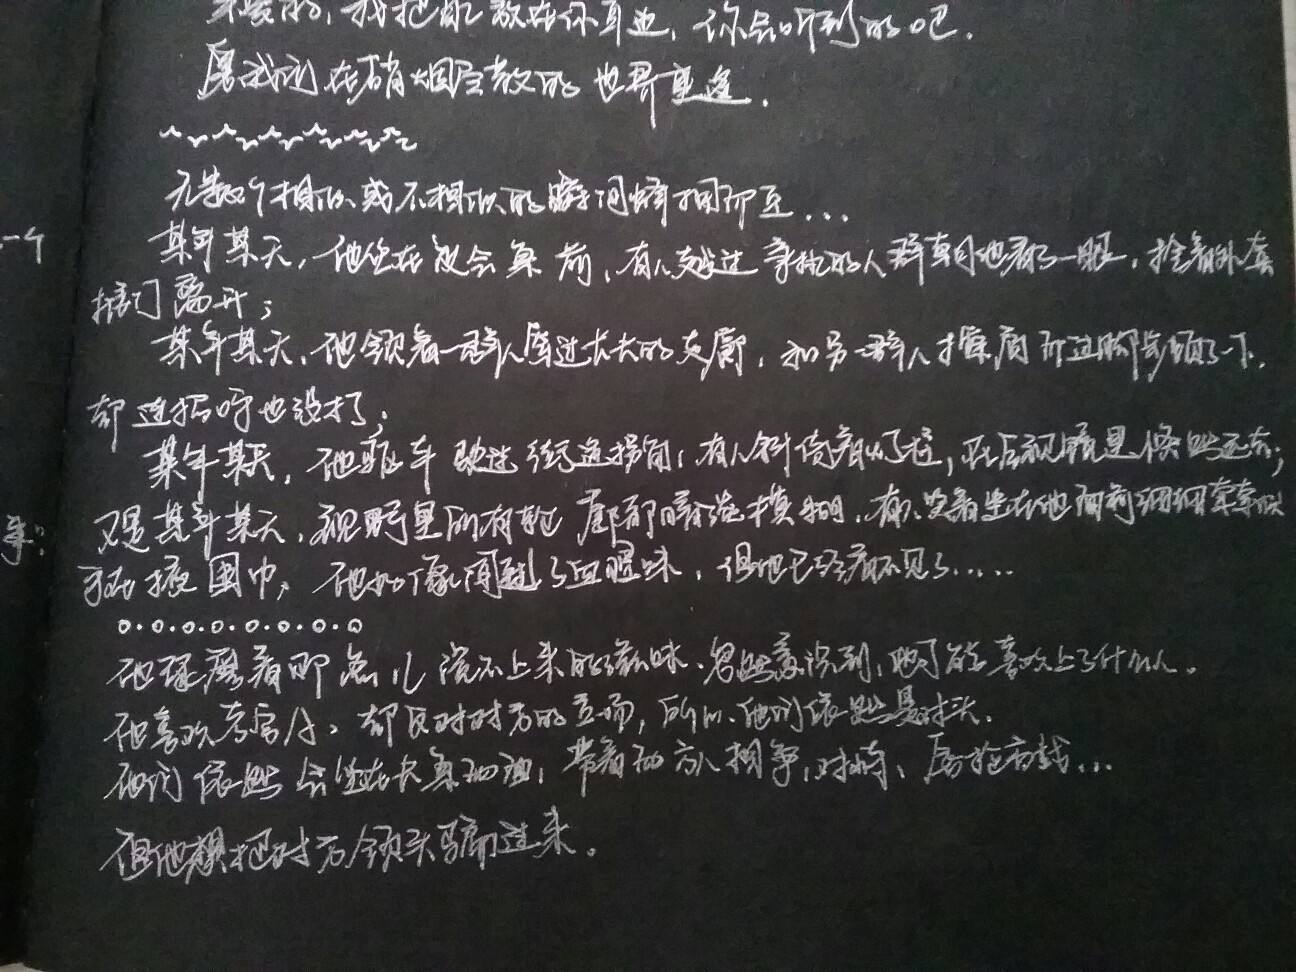 我把歌放在你耳边，你会听到的吧．
愿我们在硝烟尽散的世界重逢．
无数个相似或不相似的瞬间蜂拥而至...
一个
某年某天，他坐在议会桌前，有人越过争执的人群朝他看了一眼，拎着外套
推门离开；
某年某天，他领着一群人穿过长长的走廊，和另一群人擦肩而过脚步顿了一下，
却连招呼也没打；
某年某天，他驱车驶过街道拐角，有人斜倚着灯柱，在后视镜里倏然远去；
又是某年某天，视野里所有轮廓都暗淡模糊，有人笑着坐在他面前
围巾，他好像闻到了血腥味，但他已经看不见了......
他琢磨着那点儿说不上来的滋味，忽然意识到，他可能喜欢上了什么人．
他喜欢 却反对对方的立场，所以，他们依然是对头．
他们依然会坐在长桌两边，带着两方人相争，对峙，
但他想把对方领头骗过来．